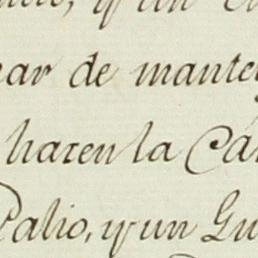 ar de mante
hacen la Ca
Palio, y un Gu